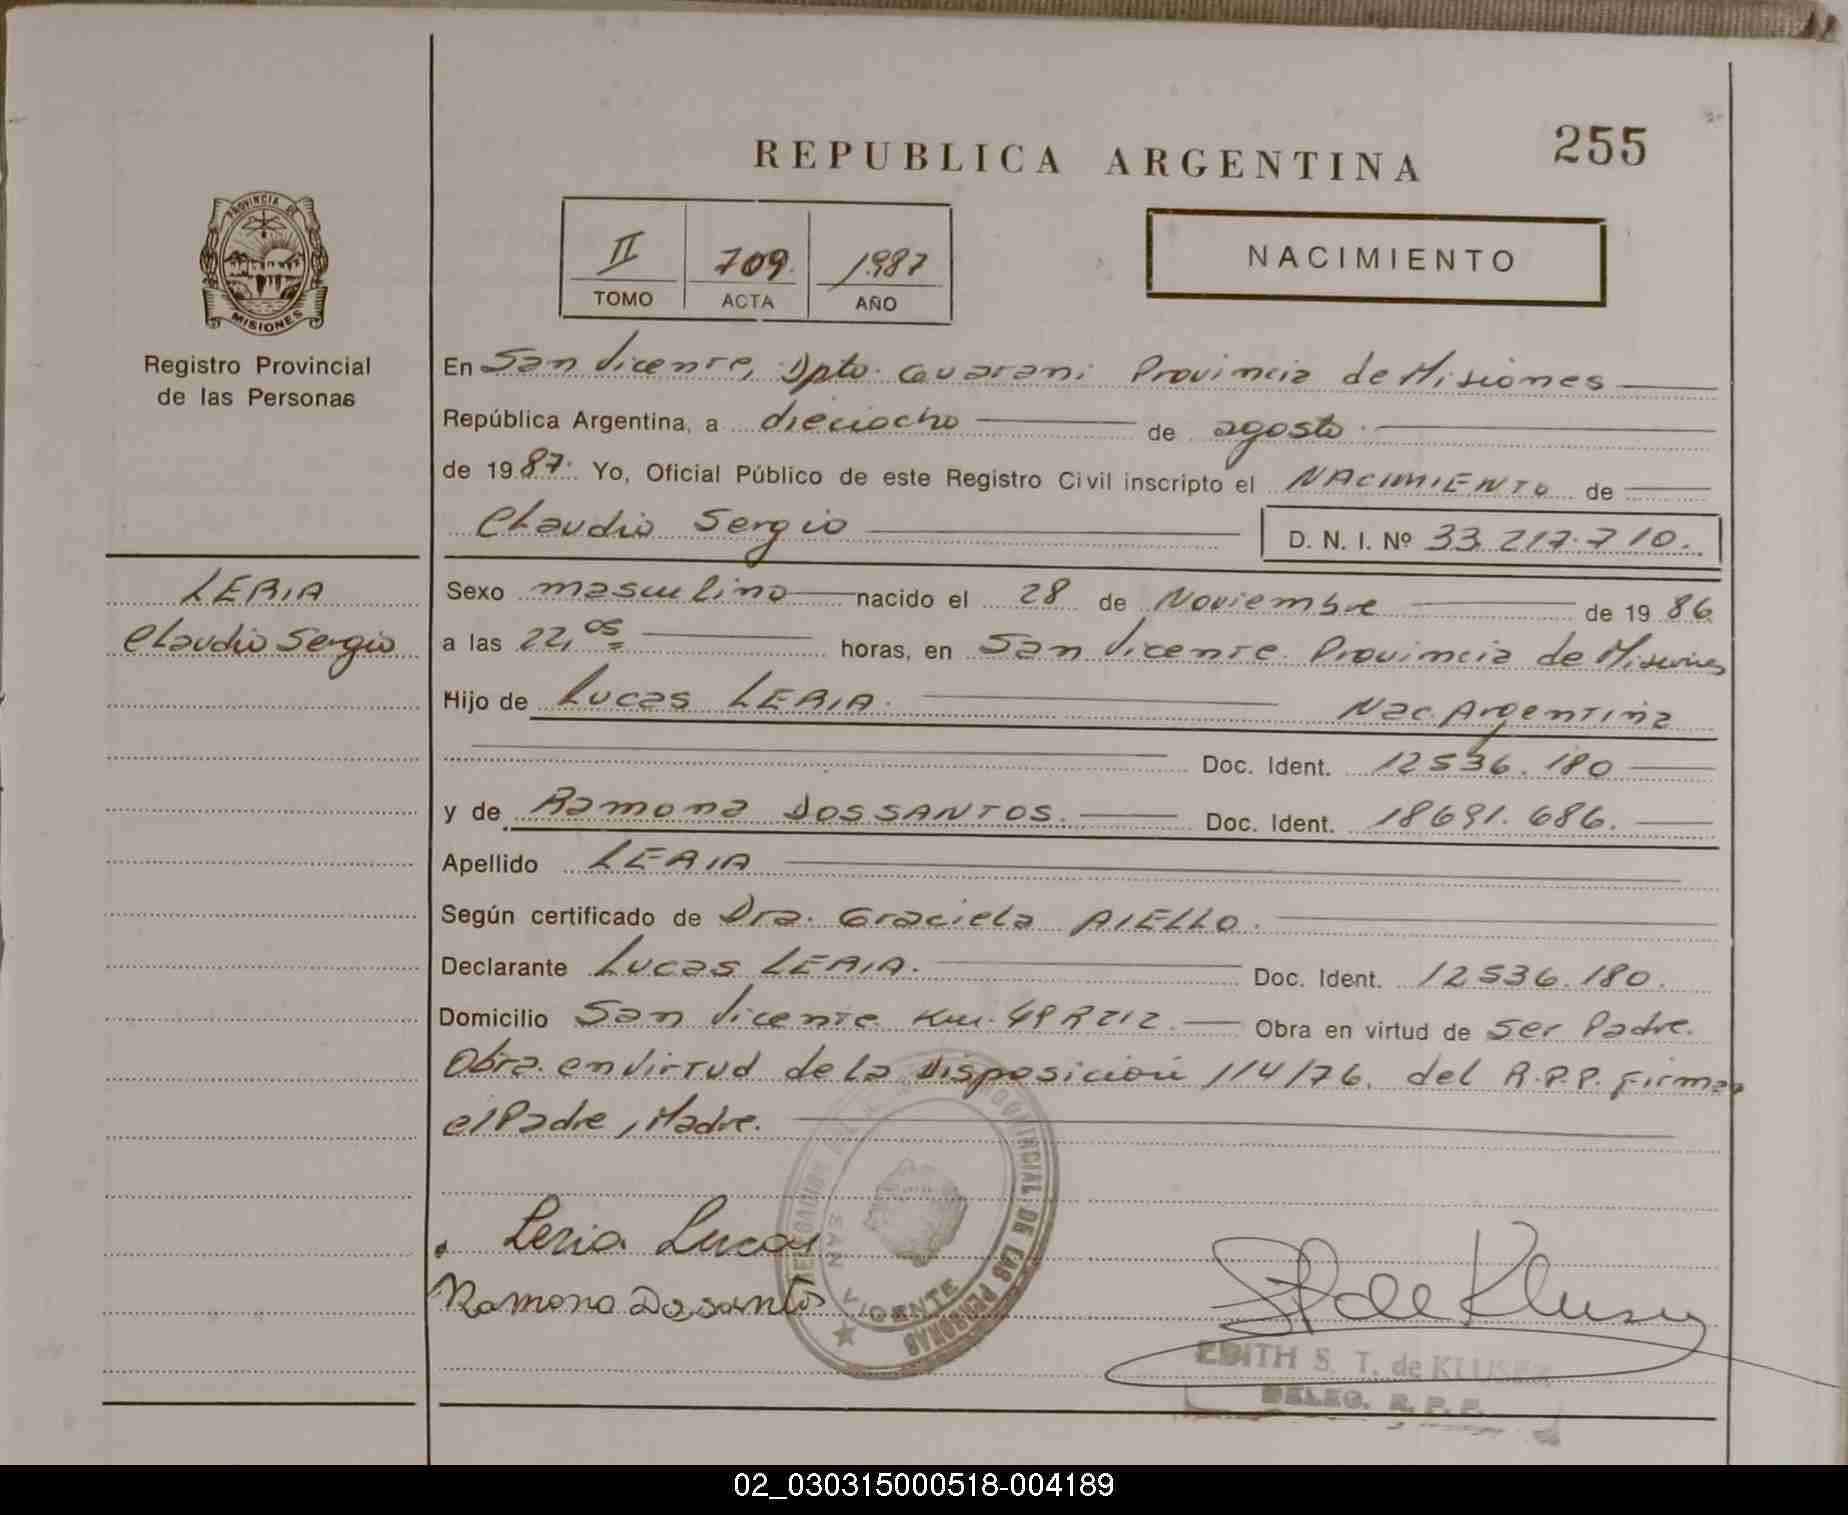 REPUBLICA ARGENTINA
255
PROVINCIA DE
MISIONES
Registro Provincial
de las Personas
II 709. 1987
TOMO ACTA AÑO
NACIMIENTO
En San Vicente, Dpto. Guarani Provincia de Misiones
República Argentina, a dieciocho de agosto.
de 1987. Yo, Oficial Público de este Registro Civil inscripto el NACIMIENTO de
Claudio Sergio
D. N. I. Nº 33.217.710.
LERIA
Claudio Sergio
Sexo masculino nacido el 28 de Noviembre de 1986
a las 22,05 horas, en San Vicente Provincia de Misiones
Hijo de Lucas LERIA. Nac. Argentina
Doc. Ident. 12536.180
y de Ramona DOSSANTOS. Doc. Ident. 18691.686.
Apellido LERIA
Según certificado de Dra. Graciela AIELLO.
Declarante Lucas LERIA. Doc. Ident. 12536.180.
Domicilio San Vicente Km. 49 R 212 Obra en virtud de Ser Padre.
Obra en Virtud de la Disposición 114/76. del R.P.P. Firman
el Padre, Madre.
Leria Lucas
Ramona Dosantos
PROVINCIAL DE LAS PERSONAS
SAN VICENTE
EDITH S. T. de KLUSER
DELEG. R. P. P.
02_030315000518-004189